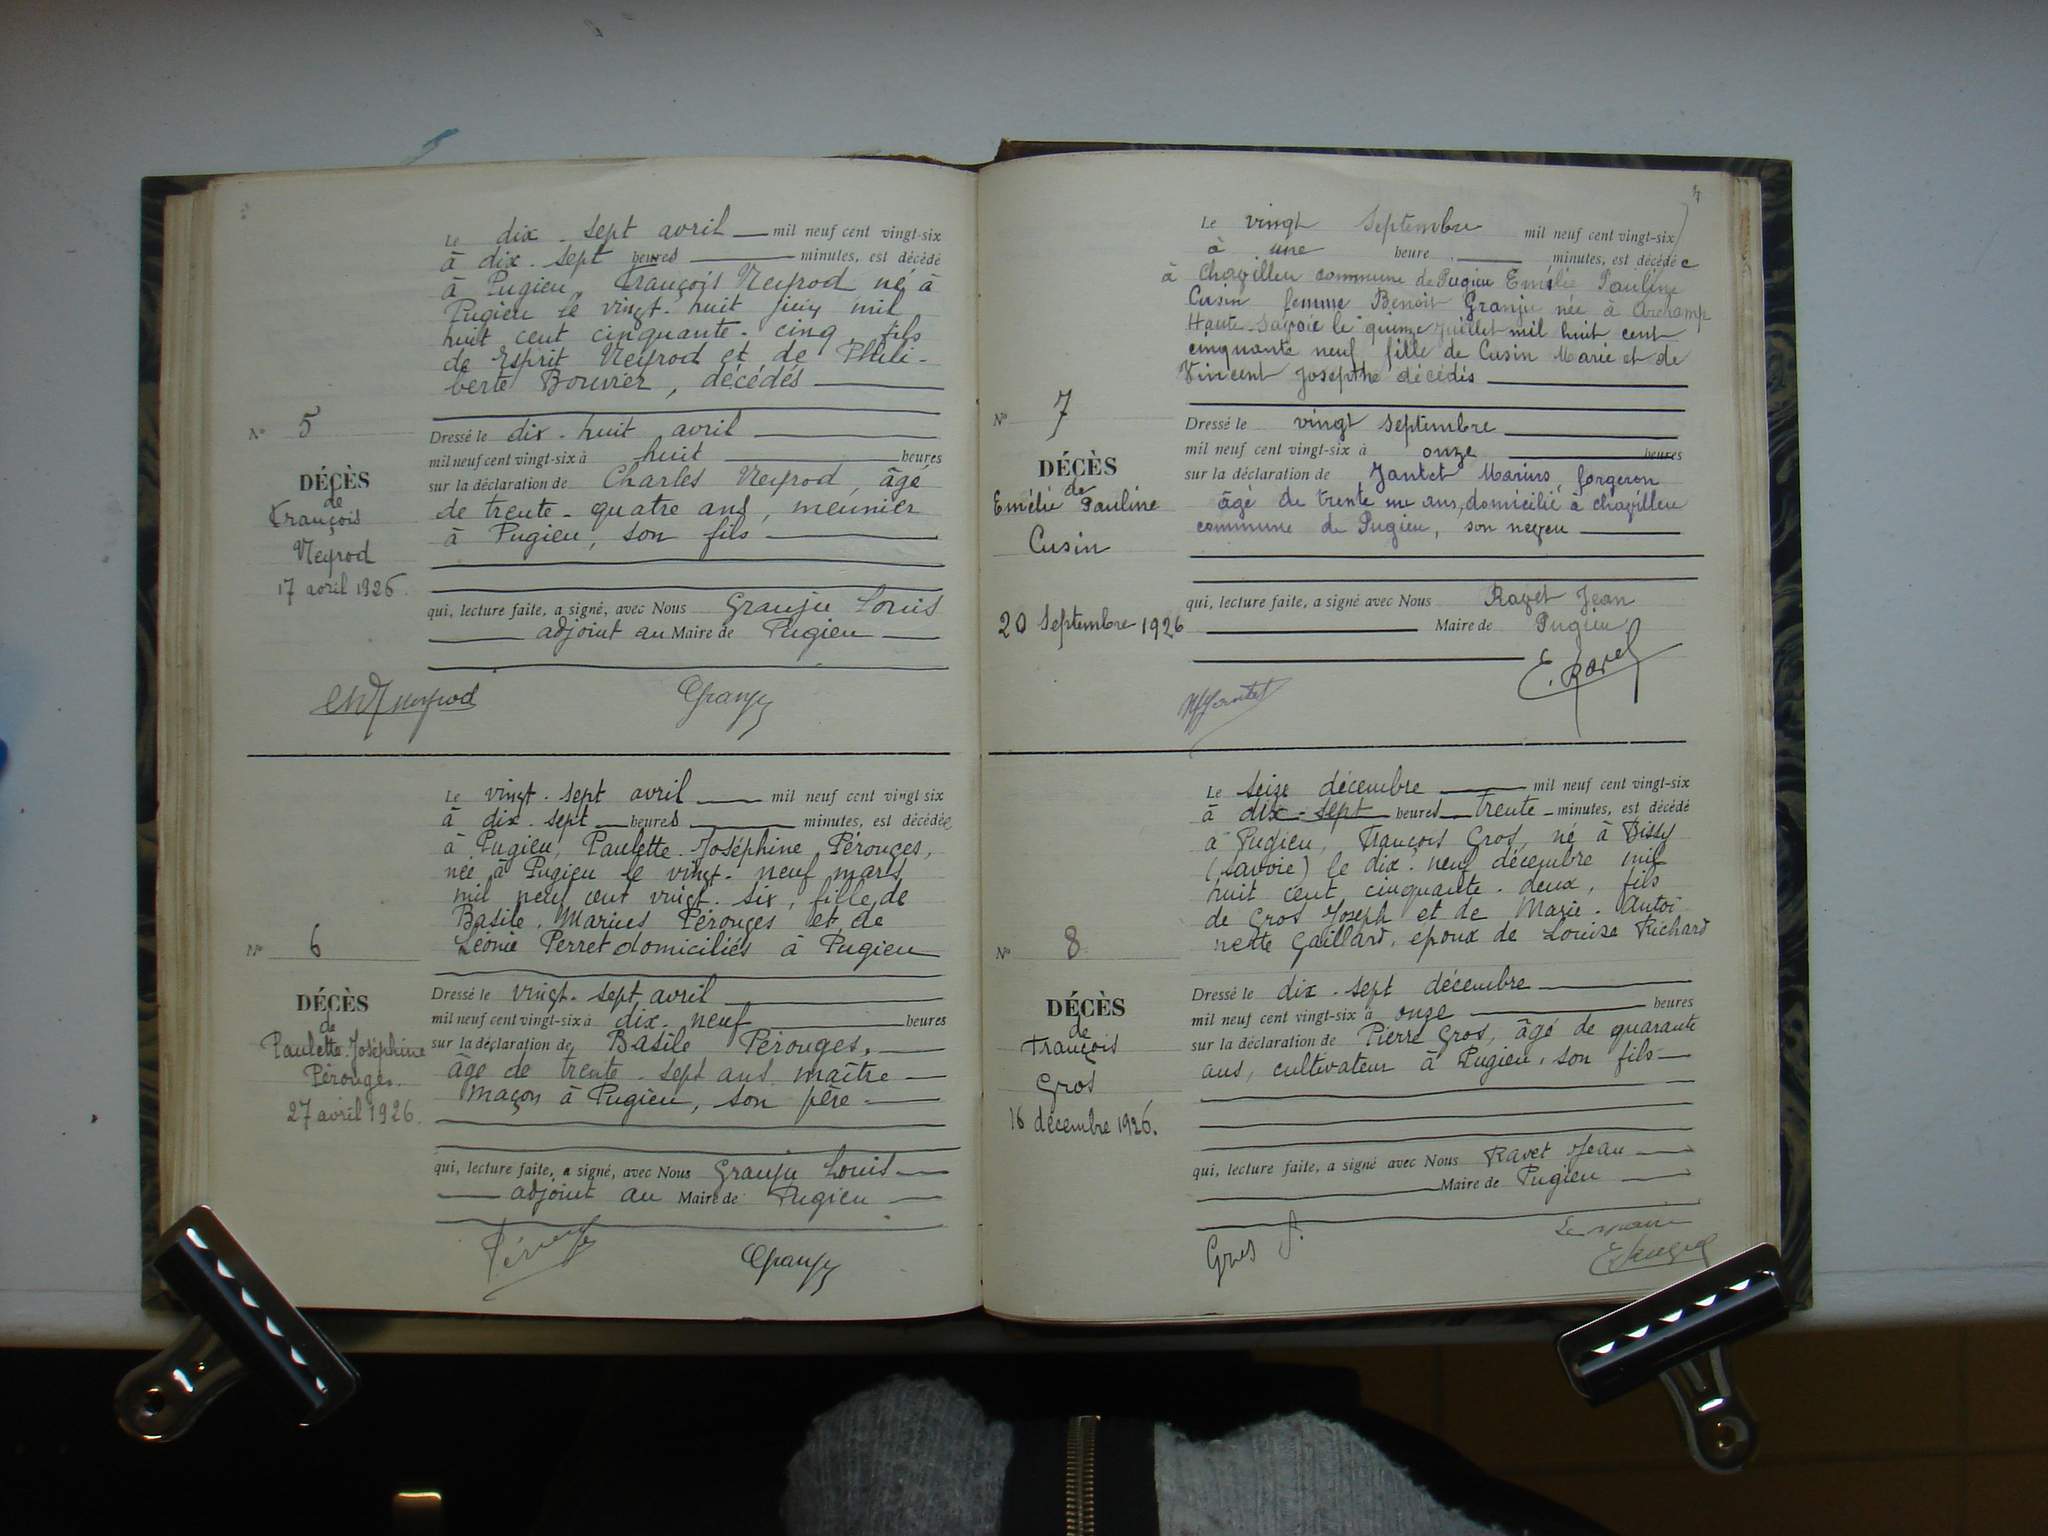 Le dix-sept avril — mil neuf cent vingt-six
à dix-sept heures — minutes, est décédé
à Pugieu, François Neyrod né à
Pugieu le vingt-huit juin mil
huit cent cinquante-cinq, fils
de Esprit Neyrod et de Phili-
berte Bouvier, décédés —
N° 5
DÉCÈS
de
François
Neyrod
17 avril 1926.
Dressé le dix-huit avril —
mil neuf cent vingt-six à huit — heures
sur la déclaration de Charles Neyrod, âgé
de trente-quatre ans, meunier
à Pugieu, son fils —
qui, lecture faite, a signé, avec Nous Granju Louis
— adjoint au Maire de Pugieu —
Granju
Le vingt-sept avril — mil neuf cent vingt-six
à dix-sept — heures — minutes, est décédée
à Pugieu, Paulette-Joséphine Pérouges,
née à Pugieu le vingt-neuf mars
mil neuf cent vingt-six, fille de
Basile-Marius Pérouges et de
Léonie Perret domiciliés à Pugieu
N° 6
DÉCÈS
de
Paulette-Joséphine
Pérouges.
27 avril 1926.
Dressé le vingt-sept avril —
mil neuf cent vingt-six à dix-neuf — heures
sur la déclaration de Basile Pérouges, —
âgé de trente-sept ans maître —
maçon à Pugieu, son père —
qui, lecture faite, a signé, avec Nous Granju Louis —
— adjoint au Maire de Pugieu —
Granju
Le vingt septembre mil neuf cent vingt-six
à une heure — minutes, est décédée
à Chavilleu commune de Pugieu Emélie Pauline
Cusin femme Benoit Granju née à Archamp
Haute-Savoie le quinze Juillet mil huit cent
cinquante neuf fille de Cusin Marie et de
Vincent Josepthe décédés —
N° 7
DÉCÈS
de
Emélie Pauline
Cusin
20 Septembre 1926
Dressé le vingt septembre —
mil neuf cent vingt-six à onze — heures
sur la déclaration de Jantet Marius, forgeron
âgé de trente un ans, domicilié à chavilleu
commune de Pugieu, son neveu —
qui, lecture faite, a signé avec Nous Ravet Jean
— Maire de Pugieu
E. Ravet
Le seize décembre — mil neuf cent vingt-six
à dix-sept heures trente minutes, est décédé
à Pugieu, François Gros, né à Bissy
(Savoie) le dix-neuf décembre mil
huit cent cinquante-deux, fils
de Gros Joseph et de Marie-Antoi
nette Gaillard, époux de Louise Richard
N° 8
DÉCÈS
de
François
Gros
16 décembre 1926.
Dressé le dix-sept décembre —
mil neuf cent vingt-six à onze — heures
sur la déclaration de Pierre Gros, âgé de quarante
ans, cultivateur à Pugieu, son fils —
qui, lecture faite, a signé avec Nous Ravet Jean —
— Maire de Pugieu —
Gros P. Le maire